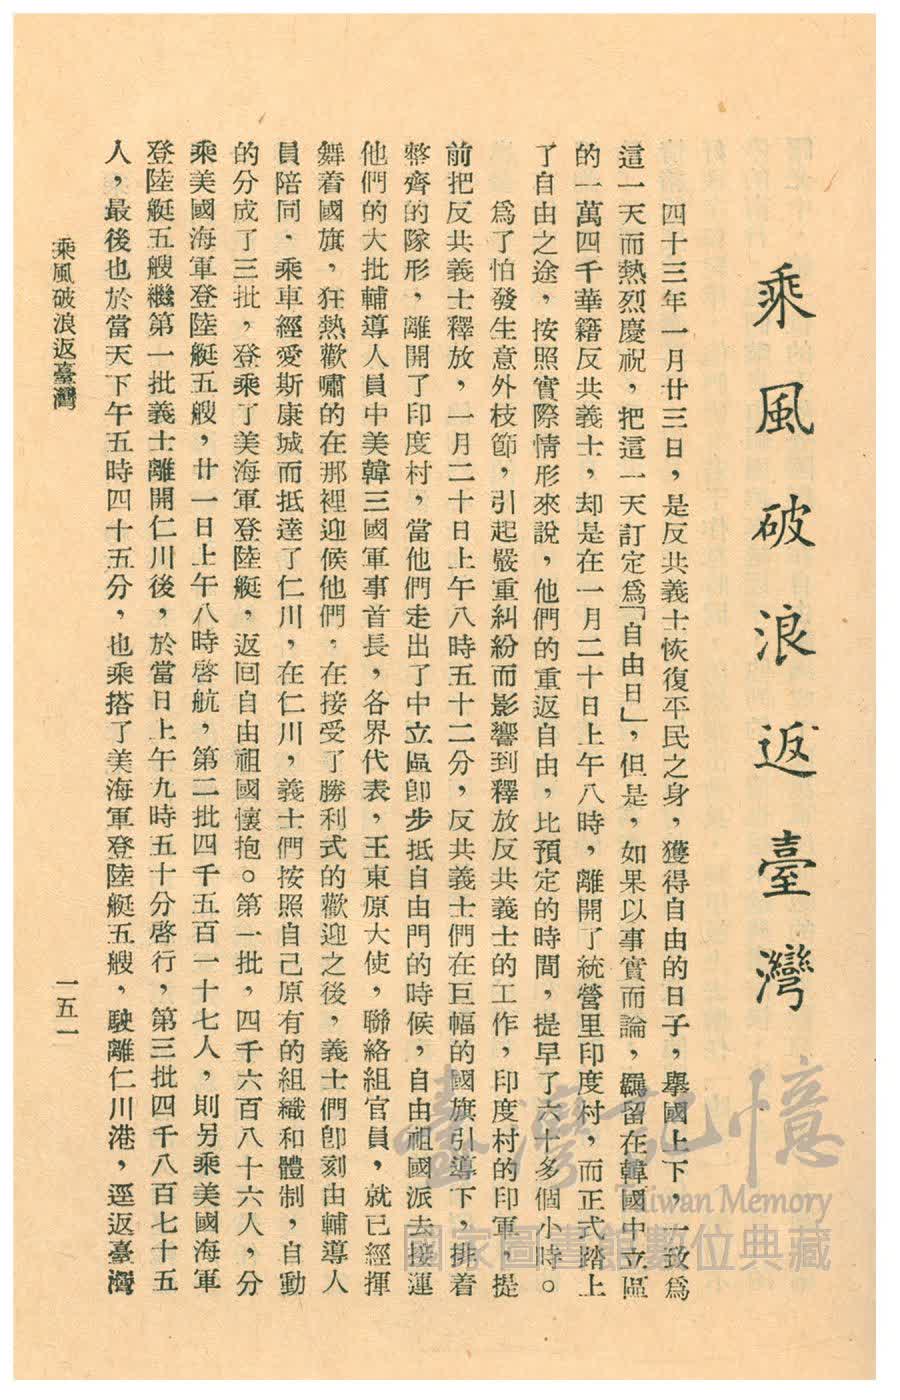 乘風破浪返臺灣
四十三年一月廿三日，是反共義士恢復平民之身，獲得自由的日子，舉國上下，一致爲
這一天而熱烈慶祝，把這一天訂定爲「自由日」，但是，如果以事實而論，羈留在韓國中立區
的一萬四千華籍反共義士，却是在一月二十日上午八時，離開了統營里印度村，而正式踏上
了自由之途，按照實際情形來說，他們的重返自由，比預定的時間，提早了六十多個小時。
爲了怕發生意外枝節，引起嚴重糾紛而影響到釋放反共義士的工作，印度村的印軍，提
前把反共義士釋放，一月二十日上午八時五十二分，反共義士們在巨幅的國旗引導下，排着
整齊的隊形，離開了印度村，當他們走出了中立區卽步抵自由門的時候，自由祖國派去接運
他們的大批輔導人員中美韓三國軍事首長，各界代表，王東原大使，聯絡組官員，就已經揮
舞着國旗，狂熱歡嘯的在那裡迎候他們，在接受了勝利式的歡迎之後，義士們卽刻由輔導人
員陪同，乘車經愛斯康城而抵達了仁川，在仁川，義士們按照自己原有的組織和體制，自動
的分成了三批，登乘了美海軍登陸艇，返回自由祖國懷抱。第一批，四千六百八十六人，分
乘美國海軍登陸艇五艘，廿一日上午八時啓航，第二批四千五百一十七人，則另乘美國海軍
登陸艇五艘繼第一批義士離開仁川後，於當日上午九時五十分啓行，第三批四千八百七十五
人，最後也於當天下午五時四十五分，也乘搭了美海軍登陸艇五艘，駛離仁川港，逕返臺灣
乘風破浪返臺灣
一五一
臺灣記憶
Taiwan Memory
國家圖書館數位典藏